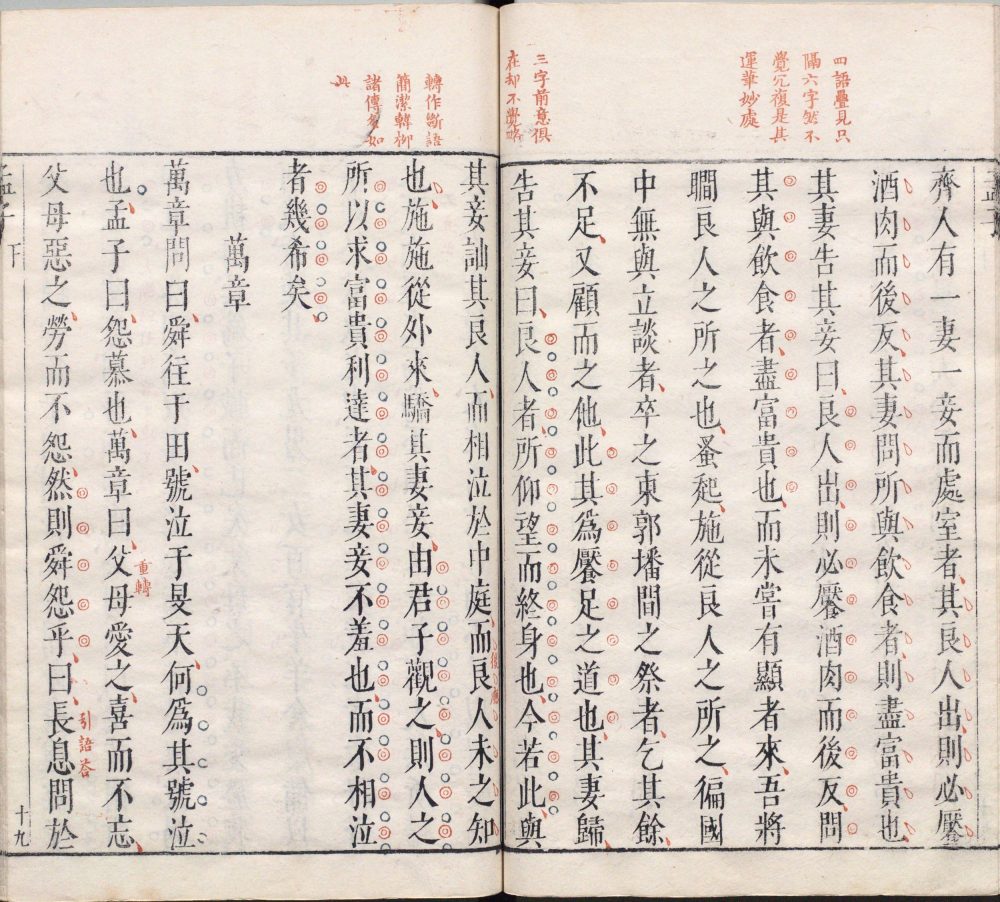 四語疊見只
隔六字然不
覺冗復是其
運筆妙處
三字前意俱
在却不覺略
齊人有一妻一妾而處室者其良人出則必饜
酒肉而後反其妻問所與飲食者則盡富貴也
其妻告其妾曰良人出則必饜酒肉而後反問
其與飲食者盡富貴也而未嘗有顯者來吾將
瞷良人之所之也蚤起施從良人之所之徧國
中無與立談者卒之東郭墦間之祭者乞其餘
不足又顧而之他此其為饜足之道也其妻歸
告其妾曰良人者所仰望而終身也今若此與
轉作斷語
簡潔韓柳
諸傳多如
此
其妾訕其良人而相泣於中庭而良人未之知
也施施從外來驕其妻妾由君子觀之則人之
所以求富貴利達者其妻妾不羞也而不相泣
者幾希矣
萬章
萬章問曰舜往于田號泣于旻天何為其號泣
也孟子曰怨慕也萬章曰父母愛之喜而不忘
重轉
父母惡之勞而不怨然則舜怨乎曰長息問於
引語答
孟子
下
十九